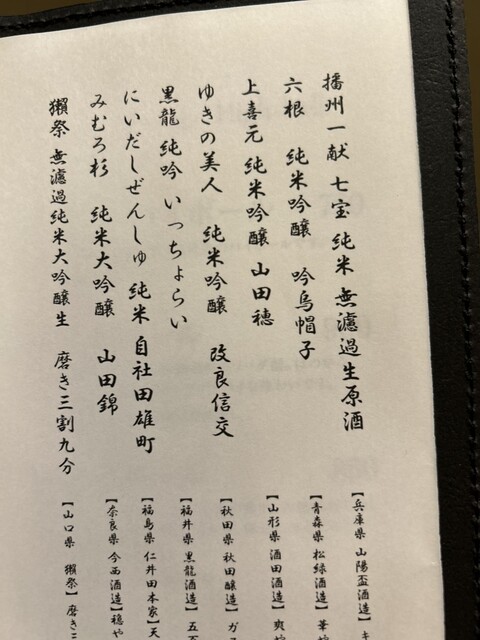 播州一献 七宝 純米 無濾過生原酒
【兵庫県 山陽盃酒造】キ
六根 純米吟醸 吟烏帽子
【青森県 松緑酒造】華や
上喜元 純米吟醸 山田穂
【山形県 酒田酒造】爽や
ゆきの美人 純米吟醸 改良信交
【秋田県 秋田醸造】ガ
黒龍 純吟 いっちょらい
【福井県 黒龍酒造】五百
にいだしぜんしゅ 純米 自社田雄町
【福島県 仁井田本家】天
みむろ杉 純米大吟醸 山田錦
【奈良県 今西酒造】穏や
獺祭 無濾過純米大吟醸生 磨き三割九分
【山口県 獺祭】磨き三